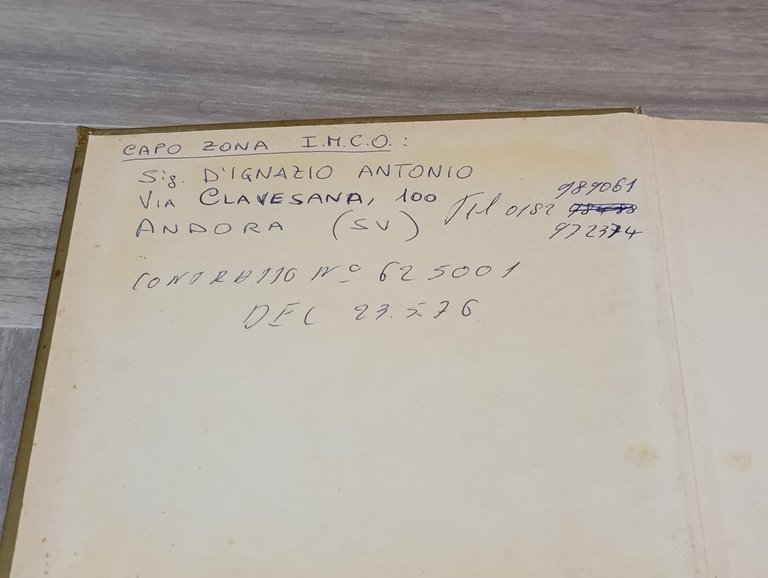 CAPO ZONA I.M.C.O.:
Sig. D'IGNAZIO ANTONIO
VIA CLAVESANA, 100
989061
ANDORA (SV) Tel 0182
972374
CONTRATTO Nº 625001
DEL 23.5.76